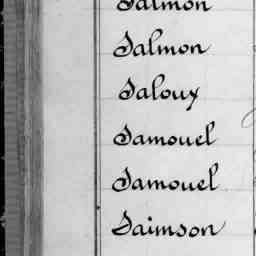 Salmon
Salmon
Saloux
Samouel
Samouel
Saimson